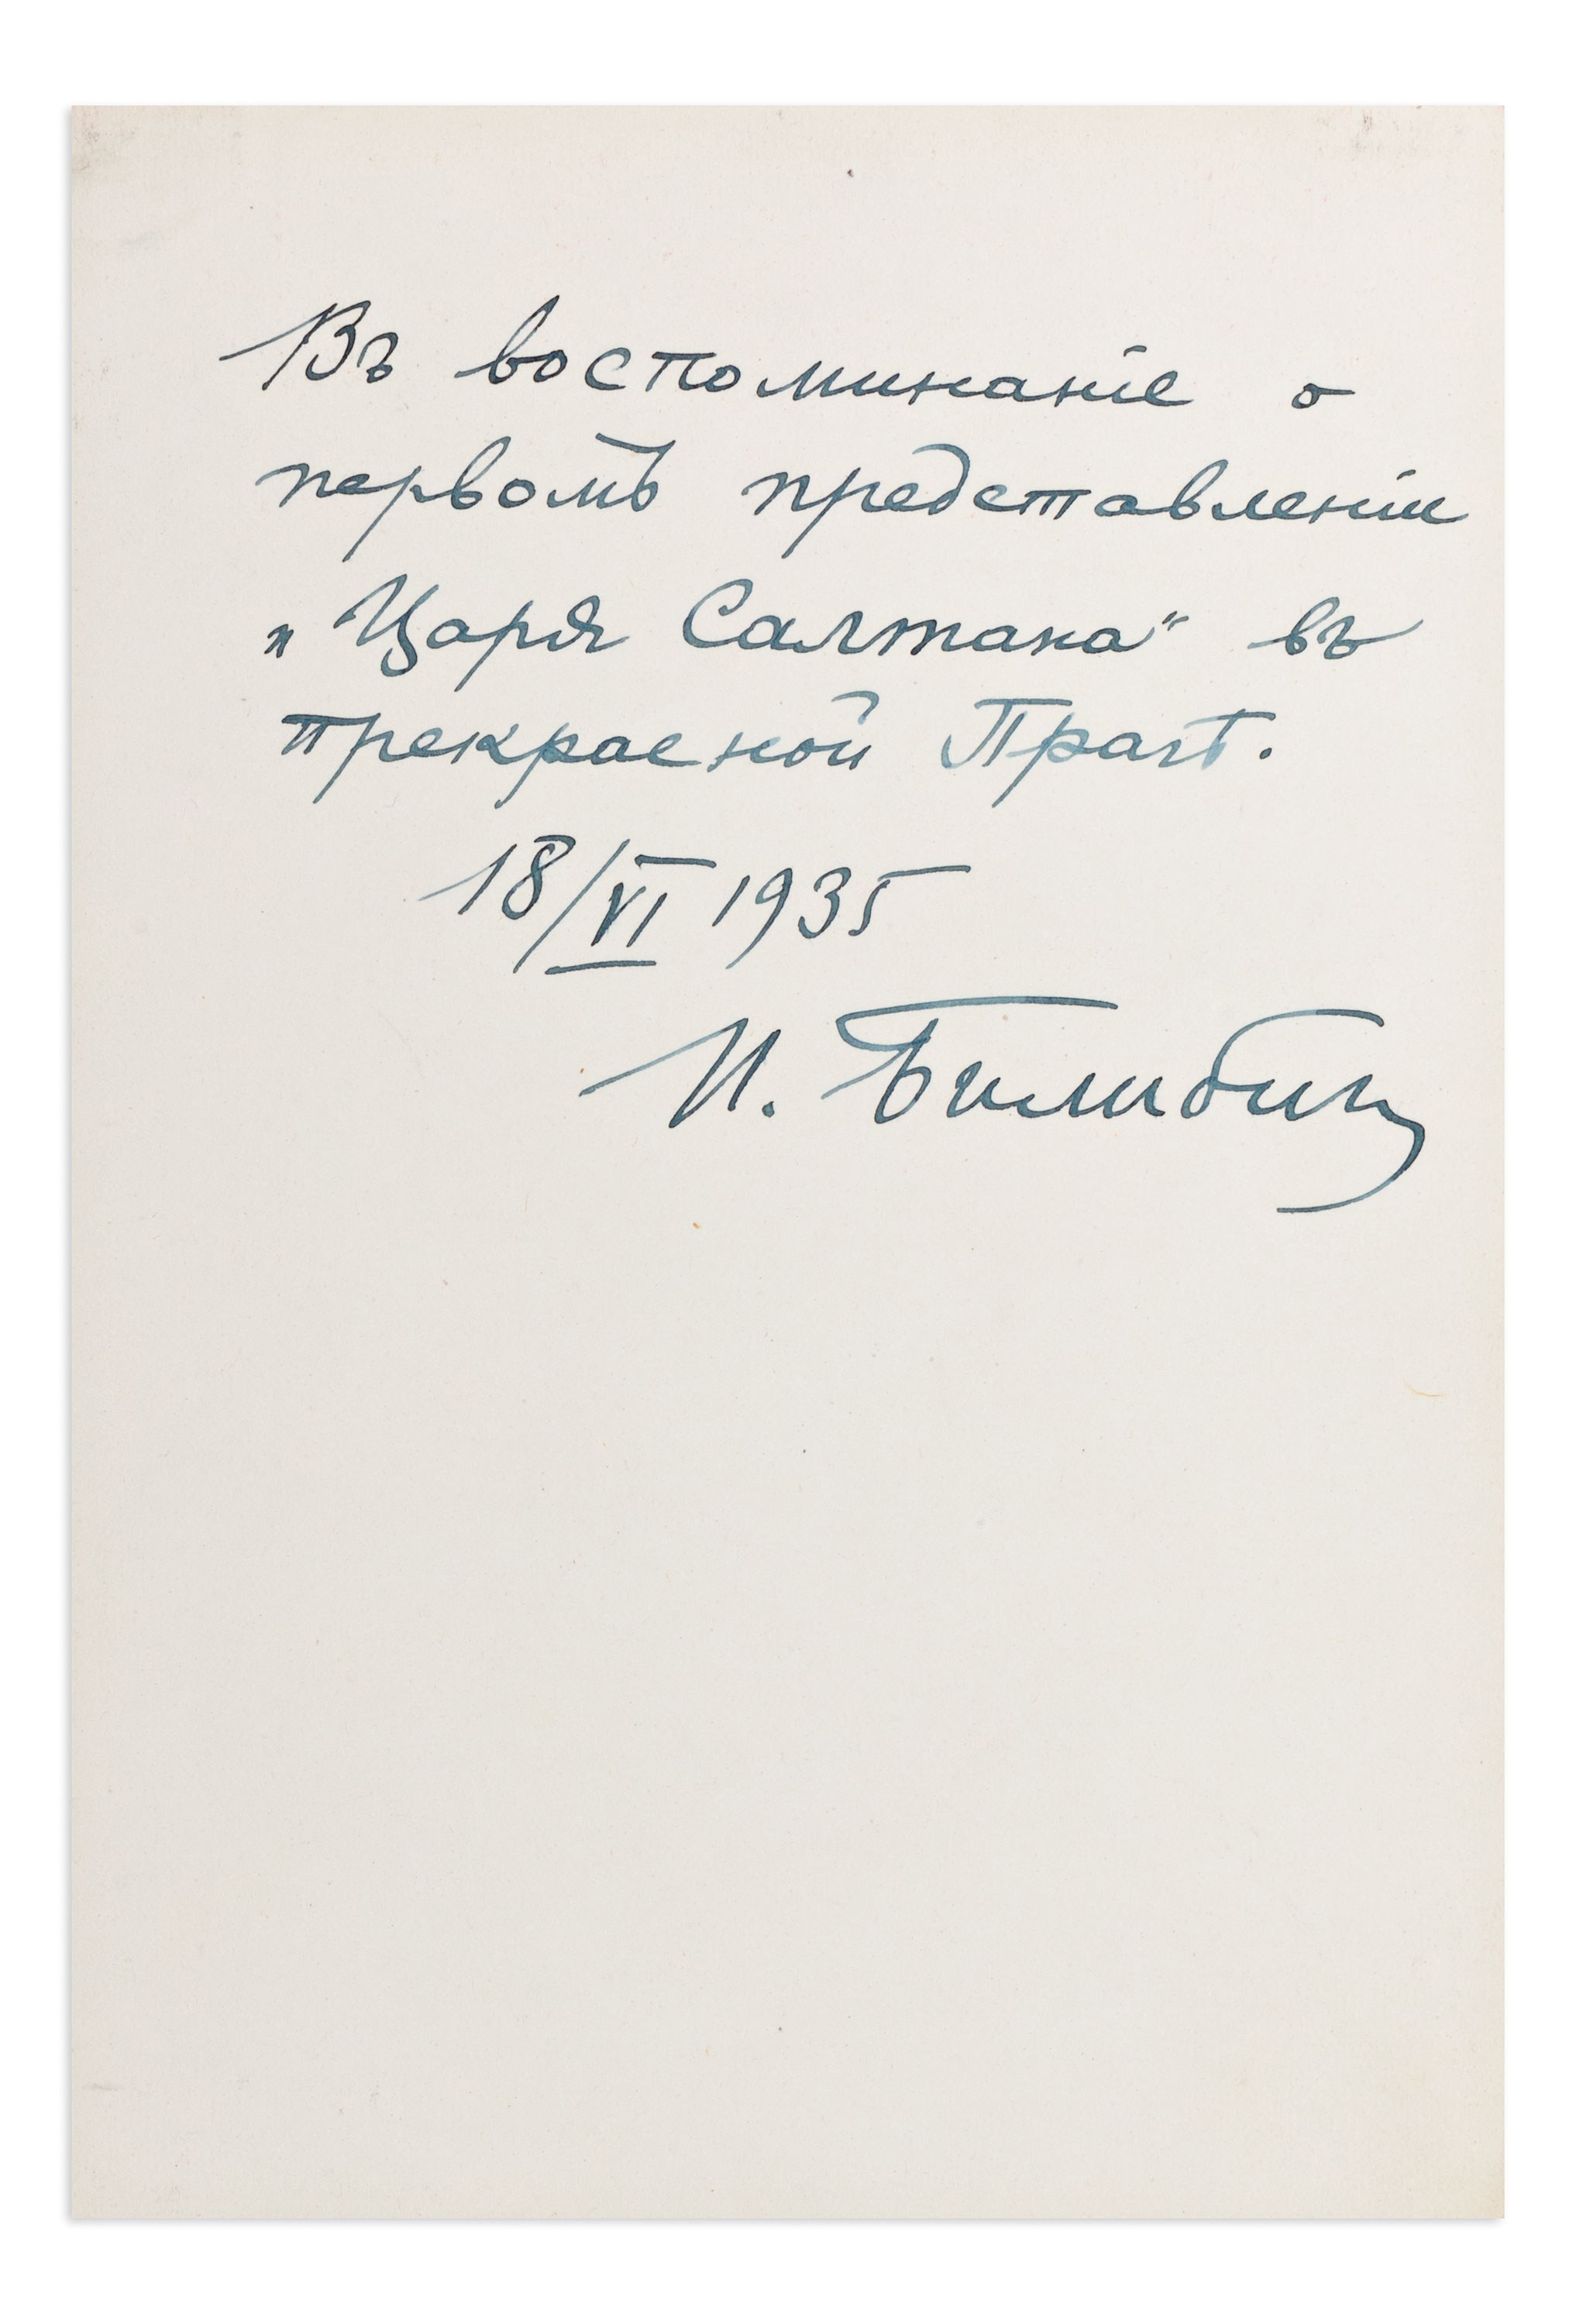 Въ воспоминанiе о
первомъ представленiи
„Царя Салтана" въ
прекрасной Прагѣ.
18/VI 1935
И. Билибин